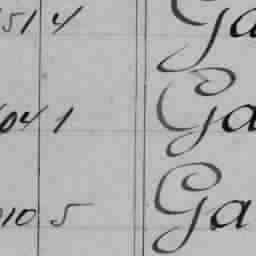 514 Ga
041 Ga
010 5 Ga